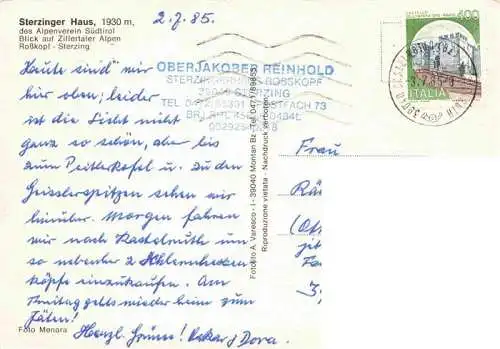 Sterzinger Haus, 1930 m,
des Alpenverein Südtirol
Blick auf Zillertaler Alpen
Roßkopf - Sterzing
2.7.85.
400
ITALIA
OBERJAKOBER REINHOLD
STERZINGERHAUS ROSSKOPF
39049 STERZING
Heute sind wir
hier oben; leider
ist die Sicht nicht
ganz so schön, aber bis
zum Peitlerkofel u. zu den
Geisslerspitzen sehen wir
hinüber. Morgen fahren
wir nach Kastelruth um
so nebenbei 2 Schlernhexen
köpfe einzukaufen. Am
Freitag gehts wieder heim zum
Jäten!
Herzl. Grüsse! Oskar & Dora.
Foto Menora
Fotolito A. Varesco - I - 39040 Montan Bz
Riproduzione vietata - Nachdruck verboten
Frau